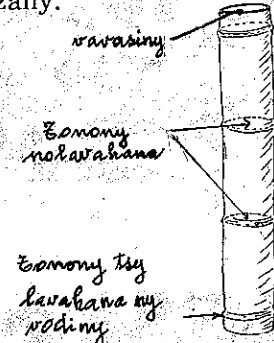 zany.
vavasiny
Tonony
nolavahana
tonony tsy
lavahana ny
vodiny